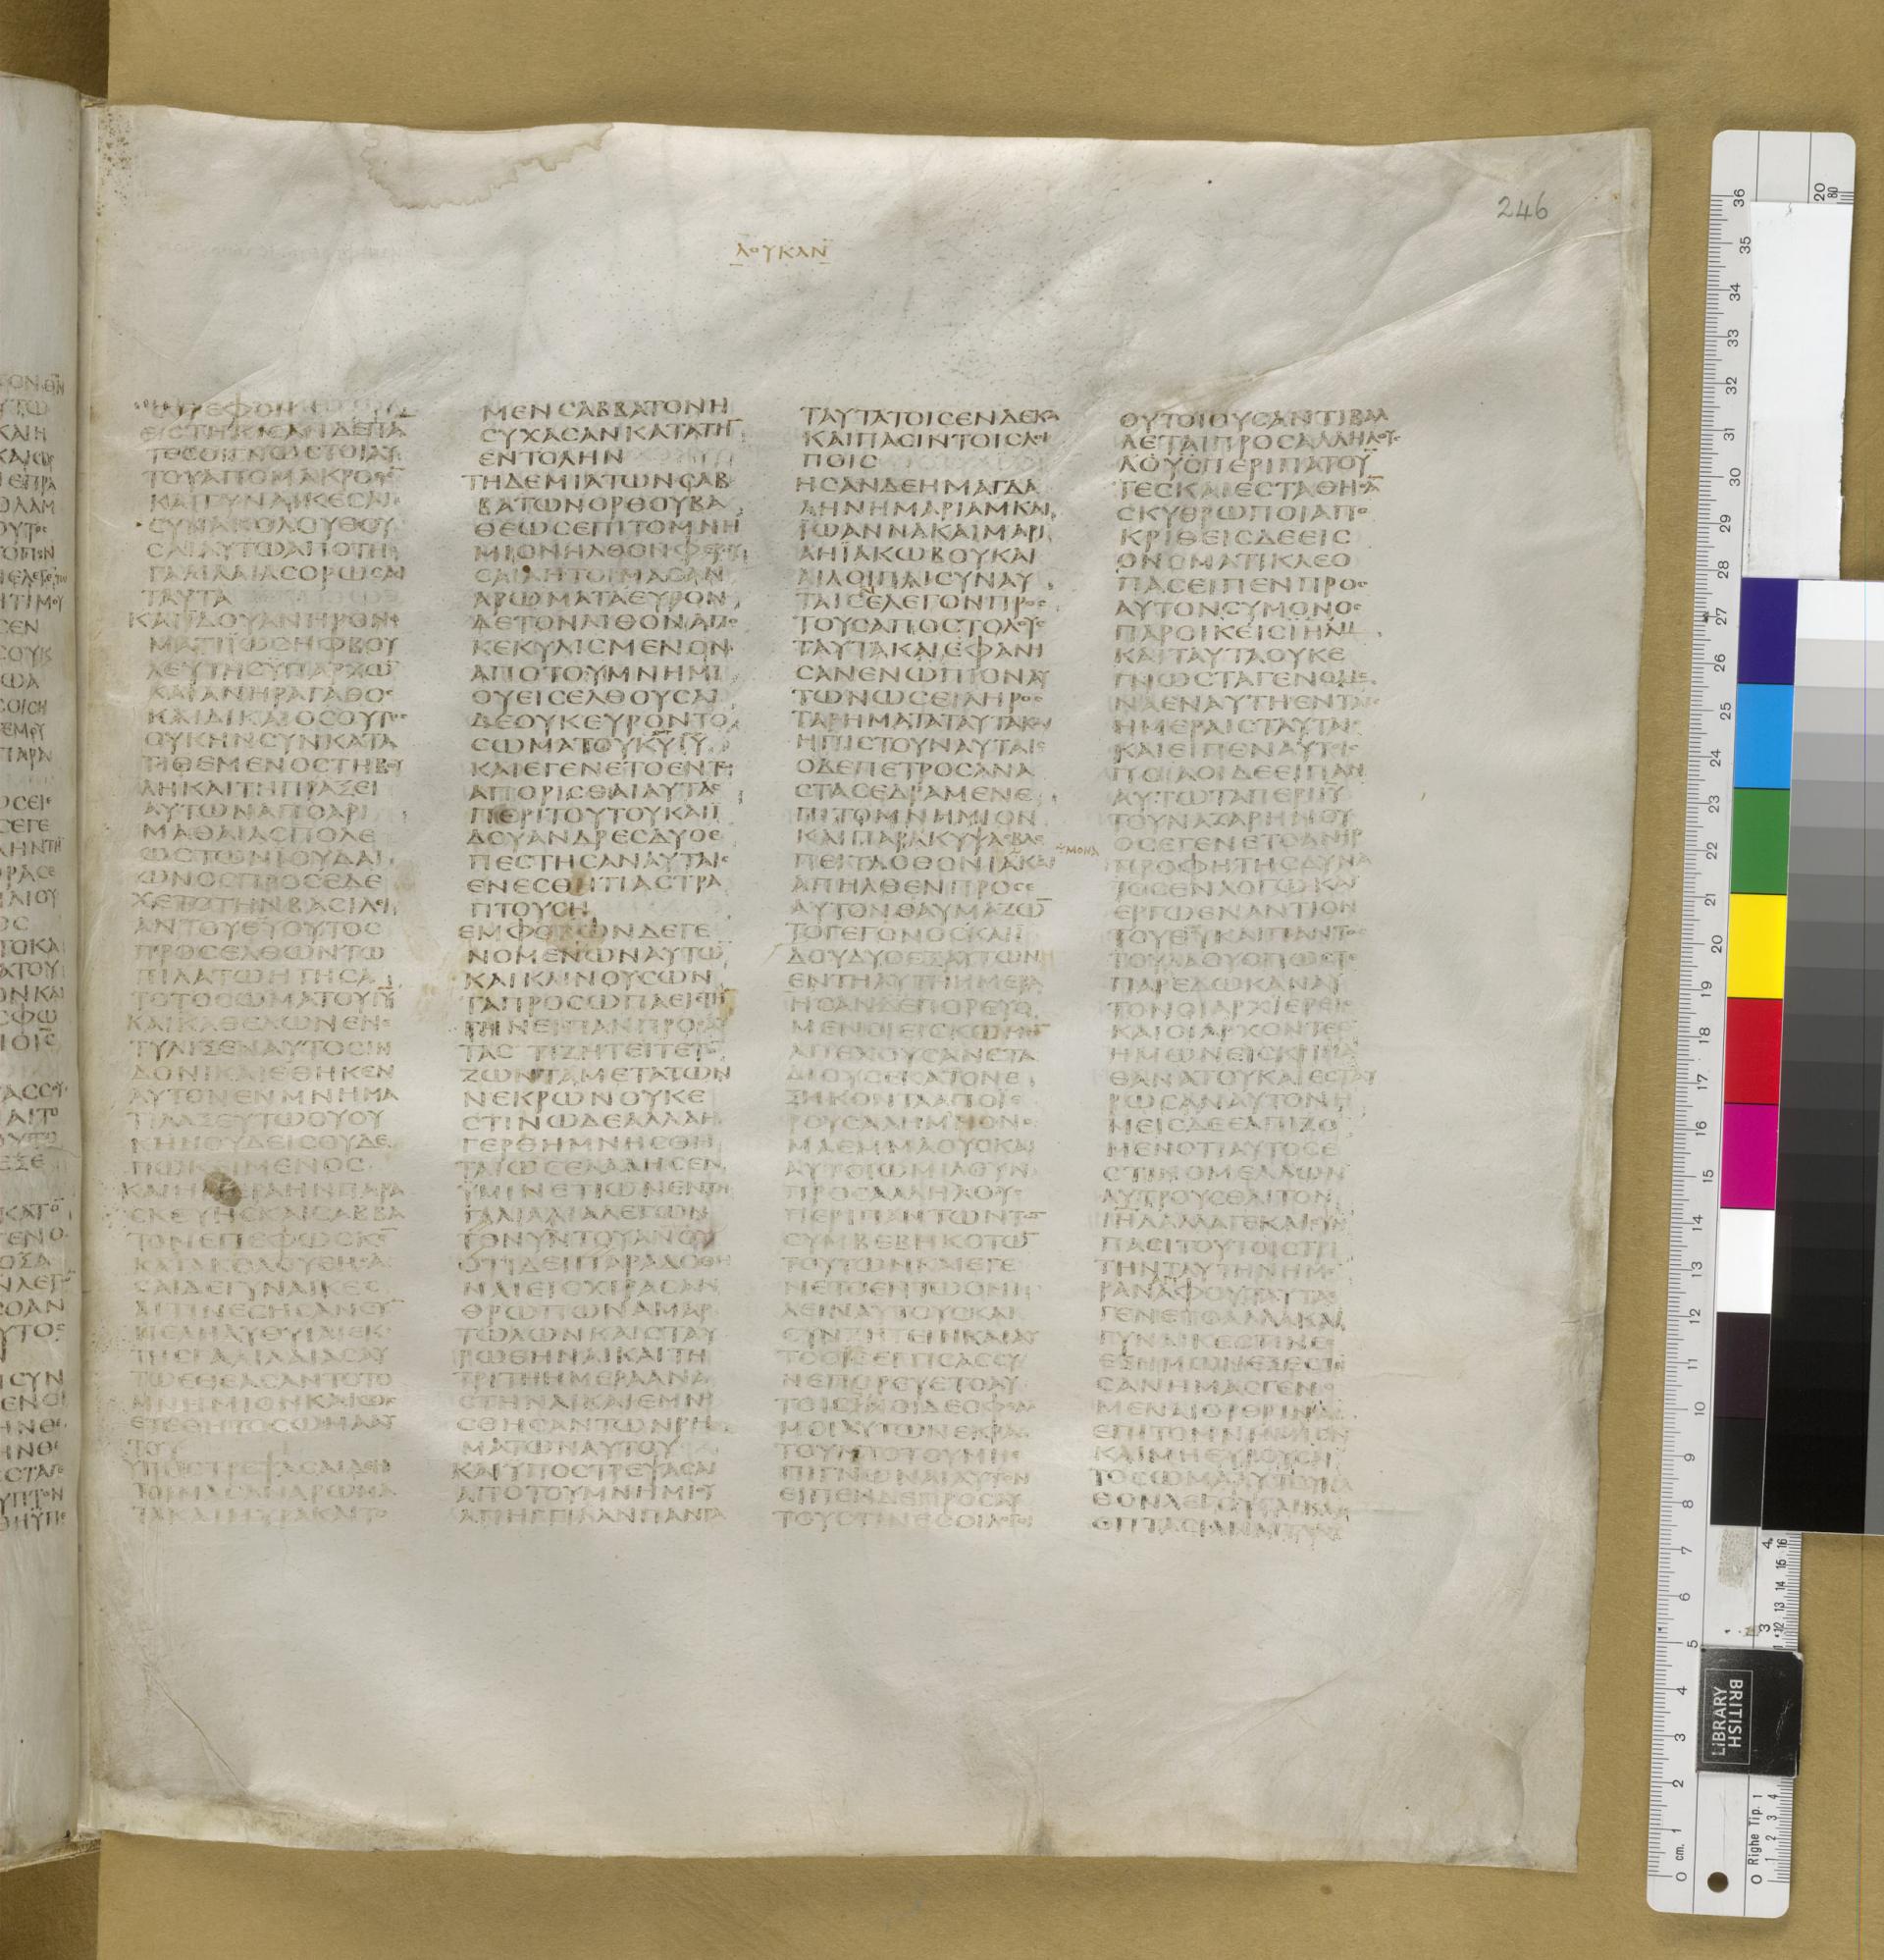 ΛΟΥΚΑΝ
246
ΕΙϹΤΗΚΙϹΑΝΔΕΠΑ
ΤΕϹΟΙΓΝΩϹΤΟΙΑΥ
ΤΟΥΑΠΟΜΑΚΡΟΘΕ̅
ΚΑΙΓΥΝΑΙΚΕϹΑΙ
ϹΥΝΑΚΟΛΟΥΘΟΥ
ϹΑΙΑΥΤΩΑΠΟΤΗϹ
ΓΑΛΙΛΑΙΑϹΟΡΩϹΑΙ
ΤΑΥΤΑ
ΚΑΙΪΔΟΥΑΝΗΡΟΝΟ
ΜΑΤΙΪΩϹΗΦΒΟΥ
ΛΕΥΤΗϹΥΠΑΡΧΩ̅
ΚΑΙΑΝΗΡΑΓΑΘΟϹ
ΚΑΙΔΙΚΑΙΟϹΟΥΤΟϹ
ΟΥΚΗΝϹΥΝΚΑΤΑ
ΤΙΘΕΜΕΝΟϹΤΗΒΟΥ
ΛΗΚΑΙΤΗΠΡΑΞΕΙ
ΑΥΤΩΝΑΠΟΑΡΙ
ΜΑΘΑΙΑϹΠΟΛΕ
ΩϹΤΩΝΙΟΥΔΑΙ
ΩΝΟϹΠΡΟϹΕΔΕ
ΧΕΤΟΤΗΝΒΑϹΙΛΕΙ
ΑΝΤΟΥΘΥΟΥΤΟϹ
ΠΡΟϹΕΛΘΩΝΤΩ
ΠΙΛΑΤΩΗΤΗϹΑ
ΤΟΤΟϹΩΜΑΤΟΥΙ̅Υ̅
ΚΑΙΚΑΘΕΛΩΝΕΝΕ
ΤΥΛΙΞΕΝΑΥΤΟϹΙΝ
ΔΟΝΙΚΑΙΕΘΗΚΕΝ
ΑΥΤΟΝΕΝΜΝΗΜΑ
ΤΙΛΑΞΕΥΤΩΟΥΟΥ
ΚΗΝΟΥΔΕΙϹΟΥΔΕ
ΠΩΚΙΜΕΝΟϹ
ΚΑΙΗΜΕΡΑΗΝΠΑΡΑ
ϹΚΕΥΗϹΚΑΙϹΑΒΒΑ
ΤΟΝΕΠΕΦΩϹΚΕ̅
ΚΑΤΑΚΟΛΟΥΘΗϹΑ
ϹΑΙΔΕΓΥΝΑΙΚΕϹ
ΑΙΤΙΝΕϹΗϹΑΝϹΥ̅
ΕΛΗΛΥΘΥΙΑΙΕΚ
ΤΗϹΓΑΛΙΛΑΙΑϹΑΥ
ΤΩΕΘΕΑϹΑΝΤΟΤΟ
ΜΝΗΜΙΟΝΚΑΙΩϹ
ΕΤΕΘΗΤΟϹΩΜΑΑΥ
ΤΟΥ
ΥΠΟϹΤΡΕΨΑϹΑΙΔΕΗ
ΤΟΙΜΑϹΑΝΑΡΩΜΑ
ΤΑΚΑΙΜΥΡΑΚΑΙΤΟ
ΜΕΝϹΑΒΒΑΤΟΝΗ
ϹΥΧΑϹΑΝΚΑΤΑΤΗ̅
ΕΝΤΟΛΗΝ
ΤΗΔΕΜΙΑΤΩΝϹΑΒ
ΒΑΤΩΝΟΡΘΟΥΒΑ
ΘΕΩϹΕΠΙΤΟΜΝΗ
ΜΙΟΝΗΛΘΟΝΦΕΡΟΥ
ϹΑΙΑΗΤΟΙΜΑϹΑΝ
ΑΡΩΜΑΤΑΕΥΡΟΝ
ΔΕΤΟΝΛΙΘΟΝΑΠΟ
ΚΕΚΥΛΙϹΜΕΝΟΝ
ΑΠΟΤΟΥΜΝΗΜΙ
ΟΥΕΙϹΕΛΘΟΥϹΑΙ
ΔΕΟΥΚΕΥΡΟΝΤΟ
ϹΩΜΑΤΟΥΚ̅Υ̅Ι̅Υ̅
ΚΑΙΕΓΕΝΕΤΟΕΝΤΩ
ΑΠΟΡΙϹΘΑΙΑΥΤΑϹ
ΠΕΡΙΤΟΥΤΟΥΚΑΙΪ
ΔΟΥΑΝΔΡΕϹΔΥΟΕ
ΠΕϹΤΗϹΑΝΑΥΤΑΙϹ
ΕΝΕϹΘΗΤΙΑϹΤΡΑ
ΠΤΟΥϹΗ
ΕΜΦΟΒΩΝΔΕΓΕ
ΝΟΜΕΝΩΝΑΥΤΩ̅
ΚΑΙΚΛΙΝΟΥϹΩΝ
ΤΑΠΡΟϹΩΠΑΕΙϹΤΗ̅
ΓΗΝΕΙΠΑΝΠΡΟϹΑΥ
ΤΑϹΤΙΖΗΤΕΙΤΕΤΟ̅
ΖΩΝΤΑΜΕΤΑΤΩΝ
ΝΕΚΡΩΝΟΥΚΕ
ϹΤΙΝΩΔΕΑΛΛΑΗ
ΓΕΡΘΗΜΝΗϹΘΗ
ΤΑΙΩϹΕΛΑΛΗϹΕΝ
ΥΜΙΝΕΤΙΩΝΕΝΤΗ
ΓΑΛΙΛΑΙΑΛΕΓΩΝ
ΤΟΝΥΝΤΟΥΑΝΟΥ
ΟΤΙΔΕΙΠΑΡΑΔΟΘΗ
ΝΑΙΕΙϹΧΙΡΑϹΑΝ
ΘΡΩΠΩΝΑΜΑΡ
ΤΩΛΩΝΚΑΙϹΤΑΥ
ΡΩΘΗΝΑΙΚΑΙΤΗ
ΤΡΙΤΗΗΜΕΡΑΑΝΑ
ϹΤΗΝΑΙΚΑΙΕΜΝΗ
ϹΘΗϹΑΝΤΩΝΡΗ
ΜΑΤΩΝΑΥΤΟΥ
ΚΑΙΥΠΟϹΤΡΕΨΑϹΑΙ
ΑΠΟΤΟΥΜΝΗΜΙΟΥ
ΑΠΗΓΓΙΛΑΝΠΑΝΤΑ
ΤΑΥΤΑΤΟΙϹΕΝΔΕΚΑ
ΚΑΙΠΑϹΙΝΤΟΙϹΛΟΙ
ΠΟΙϹ
ΗϹΑΝΔΕΗΜΑΓΔΑ
ΛΗΝΗΜΑΡΙΑΜΚΑΙ
ΪΩΑΝΝΑΚΑΙΜΑΡΙ
ΑΗΪΑΚΩΒΟΥΚΑΙ
ΑΙΛΟΙΠΑΙϹΥΝΑΥ
ΤΑΙϹΕΛΕΓΟΝΠΡΟϹ
ΤΟΥϹΑΠΟϹΤΟΛΟΥϹ
ΤΑΥΤΑΚΑΙΕΦΑΝΗ
ϹΑΝΕΝΩΠΙΟΝΑΥ
ΤΩΝΩϹΕΙΛΗΡΟϹ
ΤΑΡΗΜΑΤΑΤΑΥΤΑΚΑΙ
ΗΠΙϹΤΟΥΝΑΥΤΑΙϹ
ΟΔΕΠΕΤΡΟϹΑΝΑ
ϹΤΑϹΕΔΡΑΜΕΝΕ
ΠΙΤΟΜΝΗΜΙΟΝ
ΚΑΙΠΑΡΑΚΥΨΑϹΒΛΕ
ΠΕΙΤΑΟΘΟΝΙΑΚΑΙ
ΜΟΝΑ
ΑΠΗΛΘΕΝΠΡΟϹΕ
ΑΥΤΟΝΘΑΥΜΑΖΩ̅
ΤΟΓΕΓΟΝΟϹΚΑΙΪ
ΔΟΥΔΥΟΕΞΑΥΤΩΝ
ΕΝΤΗΑΥΤΗΗΜΕΡΑ
ΗϹΑΝΔΕΠΟΡΕΥΟ
ΜΕΝΟΙΕΙϹΚΩΜΗ̅
ΑΠΕΧΟΥϹΑΝϹΤΑ
ΔΙΟΥϹΕΚΑΤΟΝΕ
ΞΗΚΟΝΤΑΑΠΟΪΕ
ΡΟΥϹΑΛΗΜΗΟΝΟ
ΜΑΕΜΜΑΟΥϹΚΑΙ
ΑΥΤΟΙΩΜΙΛΟΥΝ
ΠΡΟϹΑΛΛΗΛΟΥϹ
ΠΕΡΙΠΑΝΤΩΝΤΩ̅
ϹΥΜΒΕΒΗΚΟΤΩ̅
ΤΟΥΤΩΝΚΑΙΕΓΕ
ΝΕΤΟΕΝΤΩΟΜΙ
ΛΕΙΝΑΥΤΟΥϹΚΑΙ
ϹΥΝΖΗΤΕΙΝΚΑΙΑΥ
ΤΟϹΙ̅Ϲ̅ΕΓΓΙϹΑϹϹΥ
ΝΕΠΟΡΕΥΕΤΟΑΥ
ΤΟΙϹΟΙΔΕΟΦΘΑΛ
ΜΟΙΑΥΤΩΝΕΚΡΑ
ΤΟΥΝΤΟΤΟΥΜΗΕ
ΠΙΓΝΩΝΑΙΑΥΤΟΝ
ΕΙΠΕΝΔΕΠΡΟϹΑΥ
ΤΟΥϹΤΙΝΕϹΟΙΛΟΓΟΙ
ΟΥΤΟΙΟΥϹΑΝΤΙΒΑΛ
ΛΕΤΑΙΠΡΟϹΑΛΛΗΛΟΥϹ
ΠΕΡΙΠΑΤΟΥ̅
ΤΕϹΚΑΙΕϹΤΑΘΗϹΑ̅
ϹΚΥΘΡΩΠΟΙΑΠΟ
ΚΡΙΘΕΙϹΔΕΕΙϹ
ΟΝΟΜΑΤΙΚΛΕΟ
ΠΑϹΕΙΠΕΝΠΡΟϹ
ΑΥΤΟΝϹΥΜΟΝΟϹ
ΠΑΡΟΙΚΕΙϹΙΗΛΜ
ΚΑΙΤΑΥΤΑΟΥΚΕ
ΓΝΩϹΤΑΓΕΝΟΜΕ
ΝΑΕΝΑΥΤΗΕΝΤΑΙϹ
ΗΜΕΡΑΙϹΤΑΥΤΑΙϹ
ΚΑΙΕΙΠΕΝΑΥΤΟΙϹ
ΠΟΙΑΟΙΔΕΕΙΠΑΝ
ΑΥΤΩΤΑΠΕΡΙΙ̅Υ̅
ΤΟΥΝΑΖΑΡΗΝΟΥ
ΟϹΕΓΕΝΕΤΟΑΝΗΡ
ΠΡΟΦΗΤΗϹΔΥΝΑ
ΤΟϹΕΝΛΟΓΩΚΑΙ
ΕΡΓΩΕΝΑΝΤΙΟΝ
ΤΟΥΘ̅Υ̅ΚΑΙΠΑΝΤΟϹ
ΤΟΥΛΑΟΥΟΠΩϹΤΕ
ΠΑΡΕΔΩΚΑΝΑΥ
ΤΟΝΟΙΑΡΧΙΕΡΕΙϹ
ΚΑΙΟΙΑΡΧΟΝΤΕϹ
ΗΜΩΝΕΙϹΚΡΙΜΑ
ΘΑΝΑΤΟΥΚΑΙΕϹΤΑΥ
ΡΩϹΑΝΑΥΤΟΝΗ
ΜΕΙϹΔΕΕΛΠΙΖΟ
ΜΕΝΟΤΙΑΥΤΟϹΕ
ϹΤΙΝΟΜΕΛΛΩΝ
ΛΥΤΡΟΥϹΘΑΙΤΟΝ
ΙΗΛΑΛΛΑΓΕΚΑΙϹΥΝ
ΠΑϹΙΤΟΥΤΟΙϹΤΡΙ
ΤΗΝΤΑΥΤΗΝΗΜΕ
ΡΑΝΑΦΟΥΤΑΥΤΑ
ΓΕΓΟΝΕΝΑΛΛΑΚΑΙ
ΓΥΝΑΙΚΕϹΤΙΝΕϹ
ΕΞΗΜΩΝΕΞΕϹΤΗ
ϹΑΝΗΜΑϹΓΕΝΟ
ΜΕΝΑΙΟΡΘΡΙΝΑΙ
ΕΠΙΤΟΜΝΗΜΙΟΝ
ΚΑΙΜΗΕΥΡΟΥϹΑΙ
ΤΟϹΩΜΑΑΥΤΟΥΗΛ
ΘΟΝΛΕΓΟΥϹΑΙΚΑΙ
ΟΠΤΑϹΙΑΝΑΓΓΕ